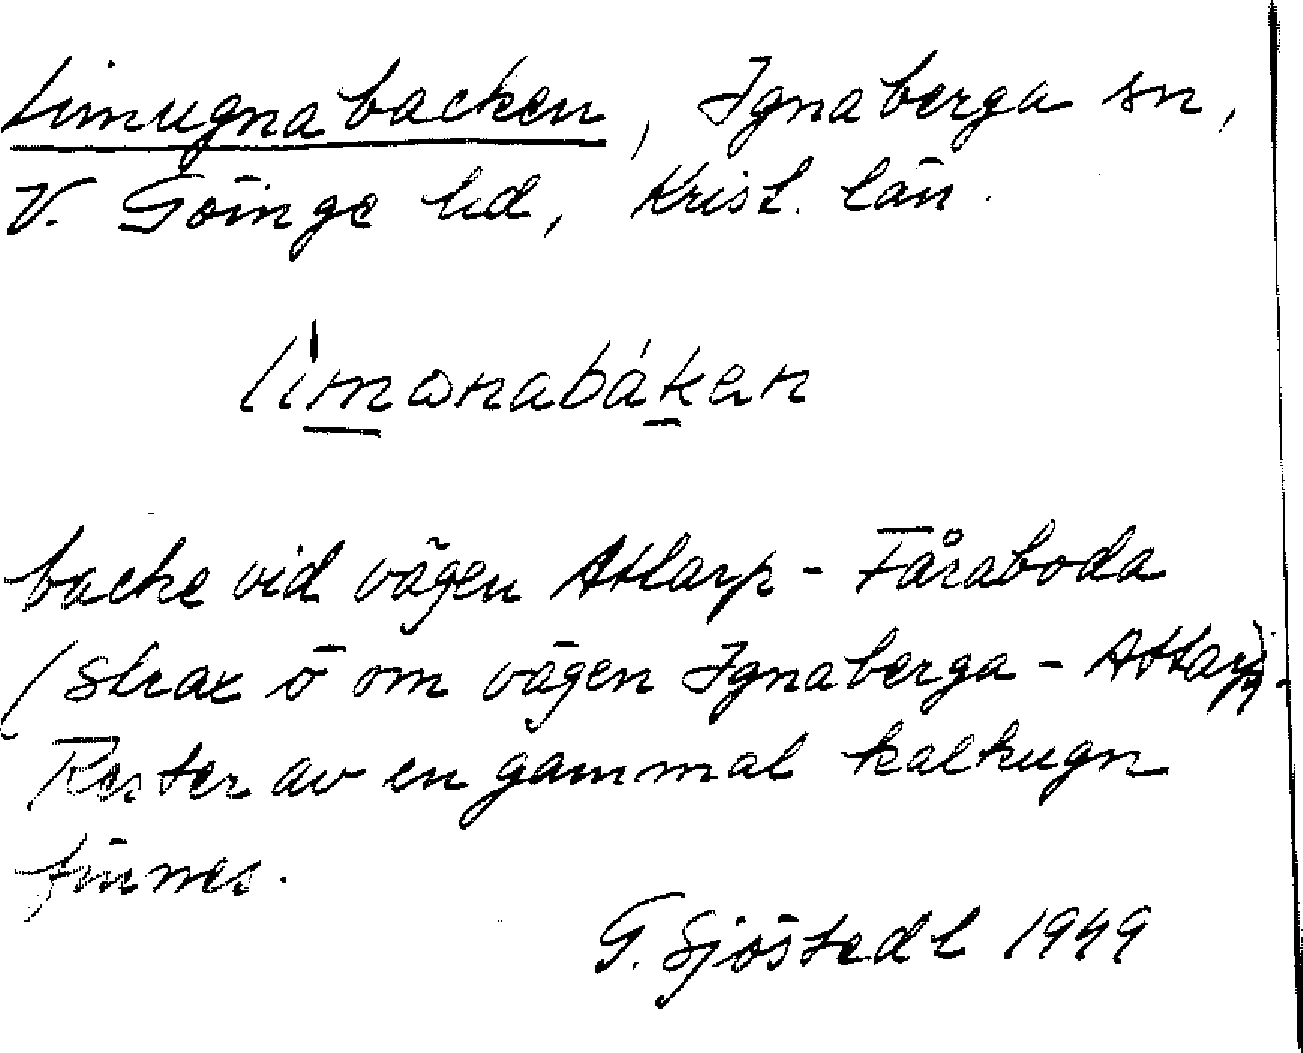 Limugnabacken, Ignaberga sn,
V. Göinge hd, Krist. län.
limωnabákan
backe vid vägen Attarp - Fåraboda
(strax ö om vägen Ignaberga - Attarp).
Rester av en gammal kalkugn
finnes.
G. Sjöstedt 1949